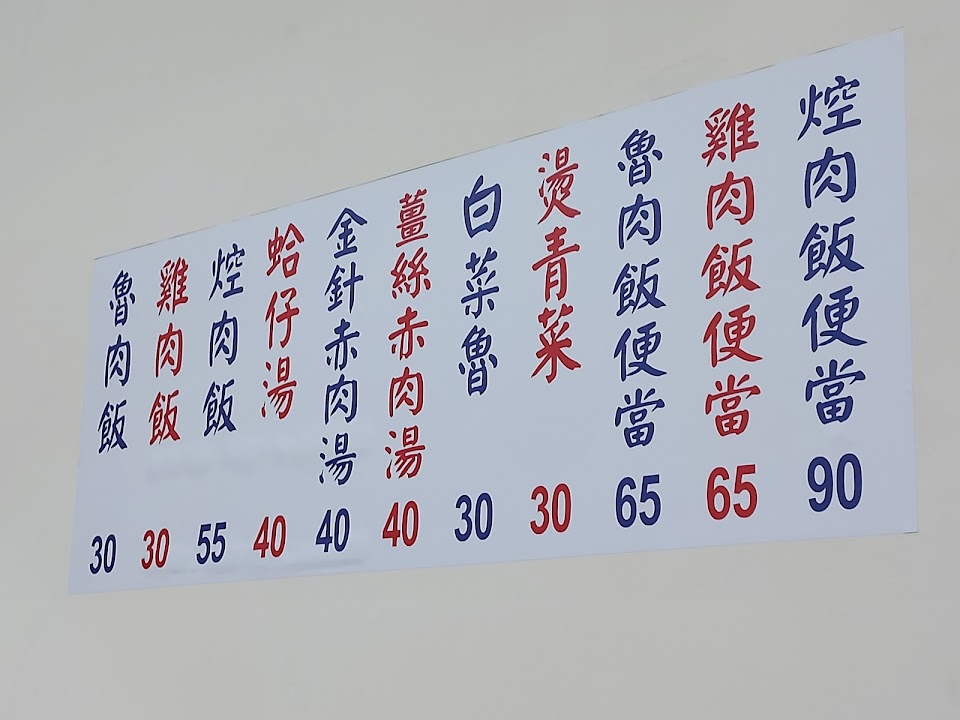 焢肉飯便當 90
雞肉飯便當 65
魯肉飯便當 65
燙青菜 30
白菜魯 30
薑絲赤肉湯 40
金針赤肉湯 40
蛤仔湯 40
焢肉飯 55
雞肉飯 30
魯肉飯 30